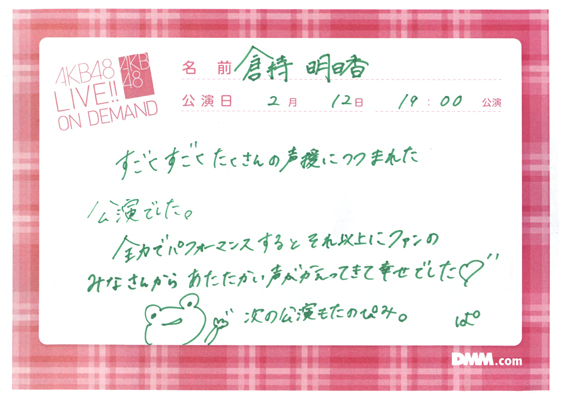 AKB48
LIVE!!
ON DEMAND
AKB
48
名 前 倉持 明日香
公演日 2月 12日 19:00 公演
すごくすごくたくさんの声援につつまれた
公演でした。
全力でパフォーマンスするとそれ以上にファンの
みなさんからあたたかい声がかえってきて幸せでした♡"
次の公演もたのぴみ。 ぱ
DMM.com